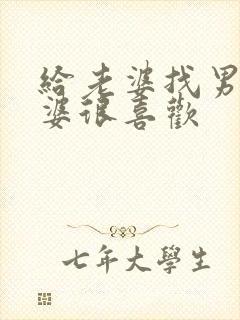 给老婆找男
婆很喜歡
七年大學生